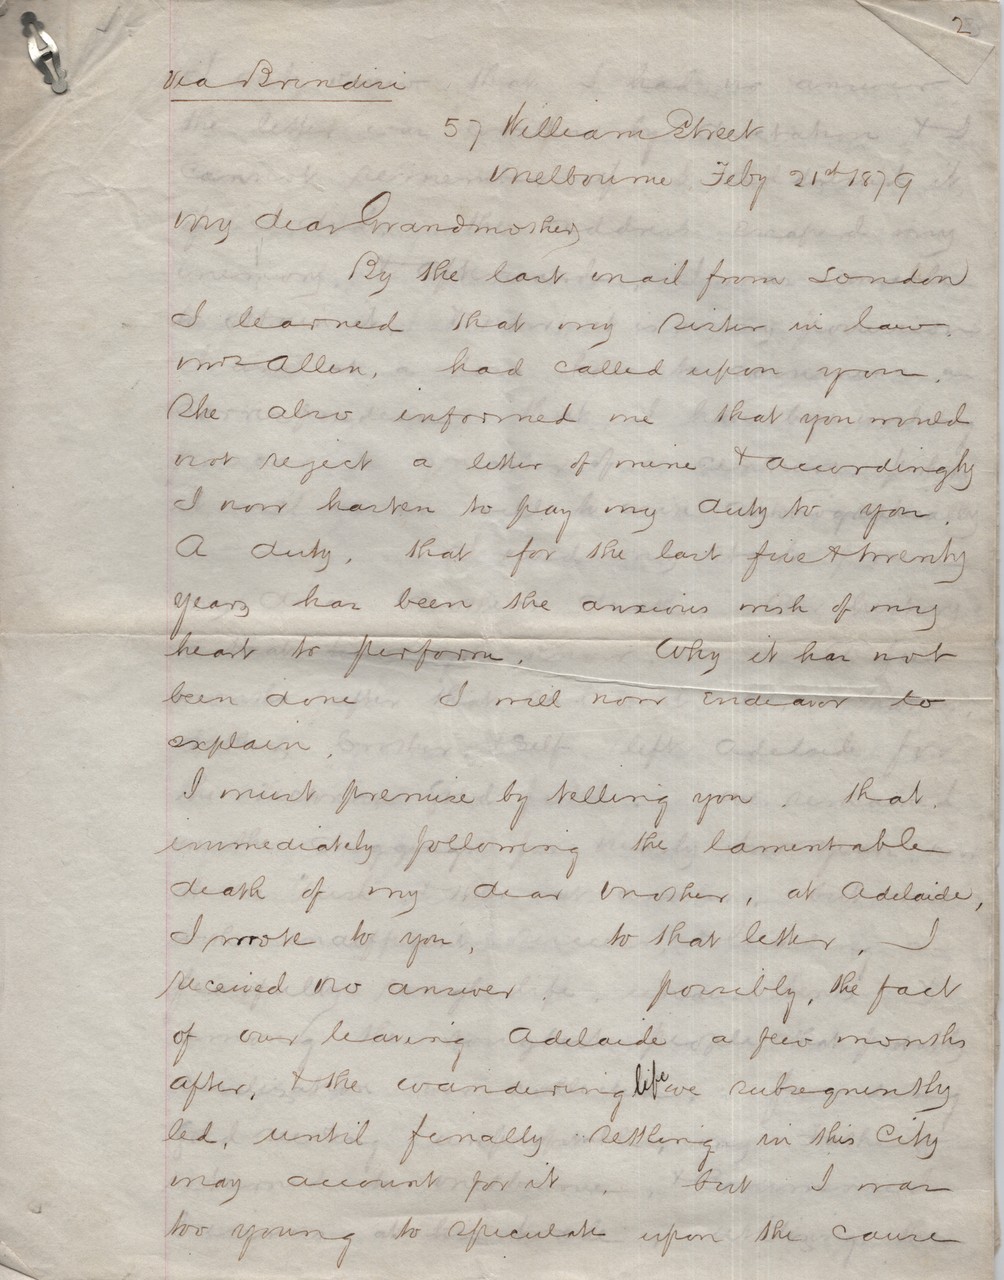 2
Via Brindisi
57 William Street
Melbourne Feby 21st 1879
My dear Grandmother
By the last mail from London
I learned that my sister in law.
Mrs Allen, had called upon you.
She also informed me that you would
not reject a letter of mine & accordingly
I now hasten to pay my duty to you.
A duty, that for the last five & twenty
years has been the anxious wish of my
heart to perform. Why it has not
been done I will now endeavor to
explain.
I must premise by telling you. that.
immediately following the lamentable
death of my dear mother, at Adelaide,
I wrote to you, to that letter, I
received no answer. possibly, the fact
of our leaving Adelaide a few months
after, & the wandering life we subsequently
led, until finally settling in this City
may account for it. but I was
too young to speculate upon the cause